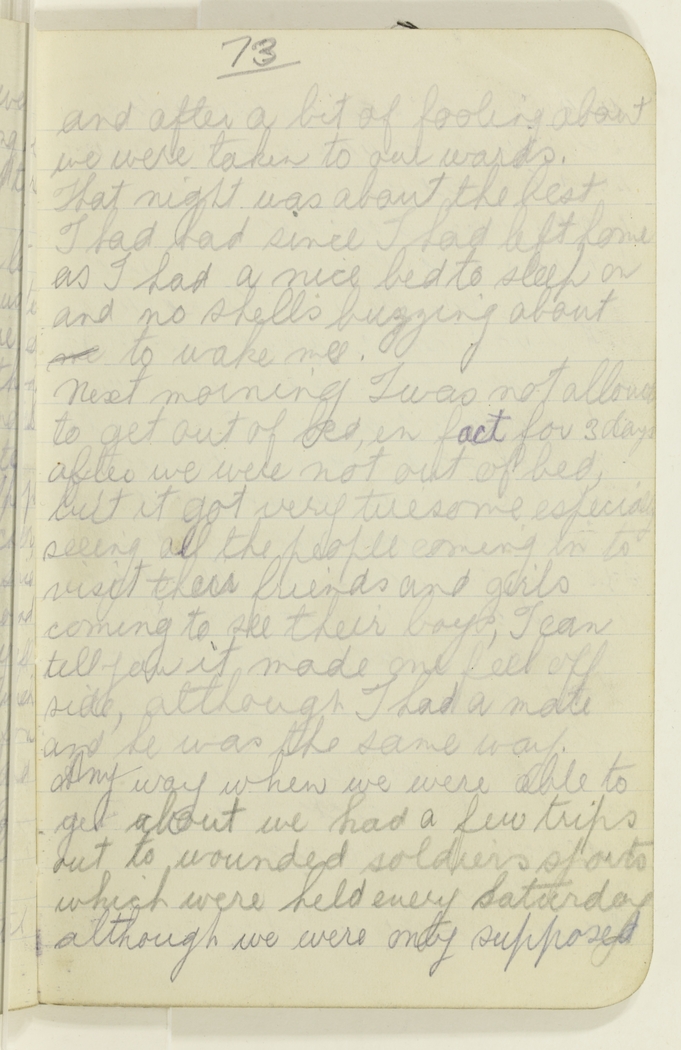 73
and after a bit of fooling about
we were taken to our wards.
That night was about the best
I had had since I had left home
as I had a nice bed to sleep on
and no shells buzzing about
me to wake me.
Next morning I was not allowed
to get out of bed, in fact for 3 days
after we were not out of bed,
but it got very tuesome especially
seeing all the people coming in to
visit their friends and girls
coming to see their boys, I can
tell you it made one feel off
side, although I had a mate
and he was the same way.
Any way when we were able to
get about we had a few trips
out to wounded soldiers sports
which were held every Saturday
although we were only supposed